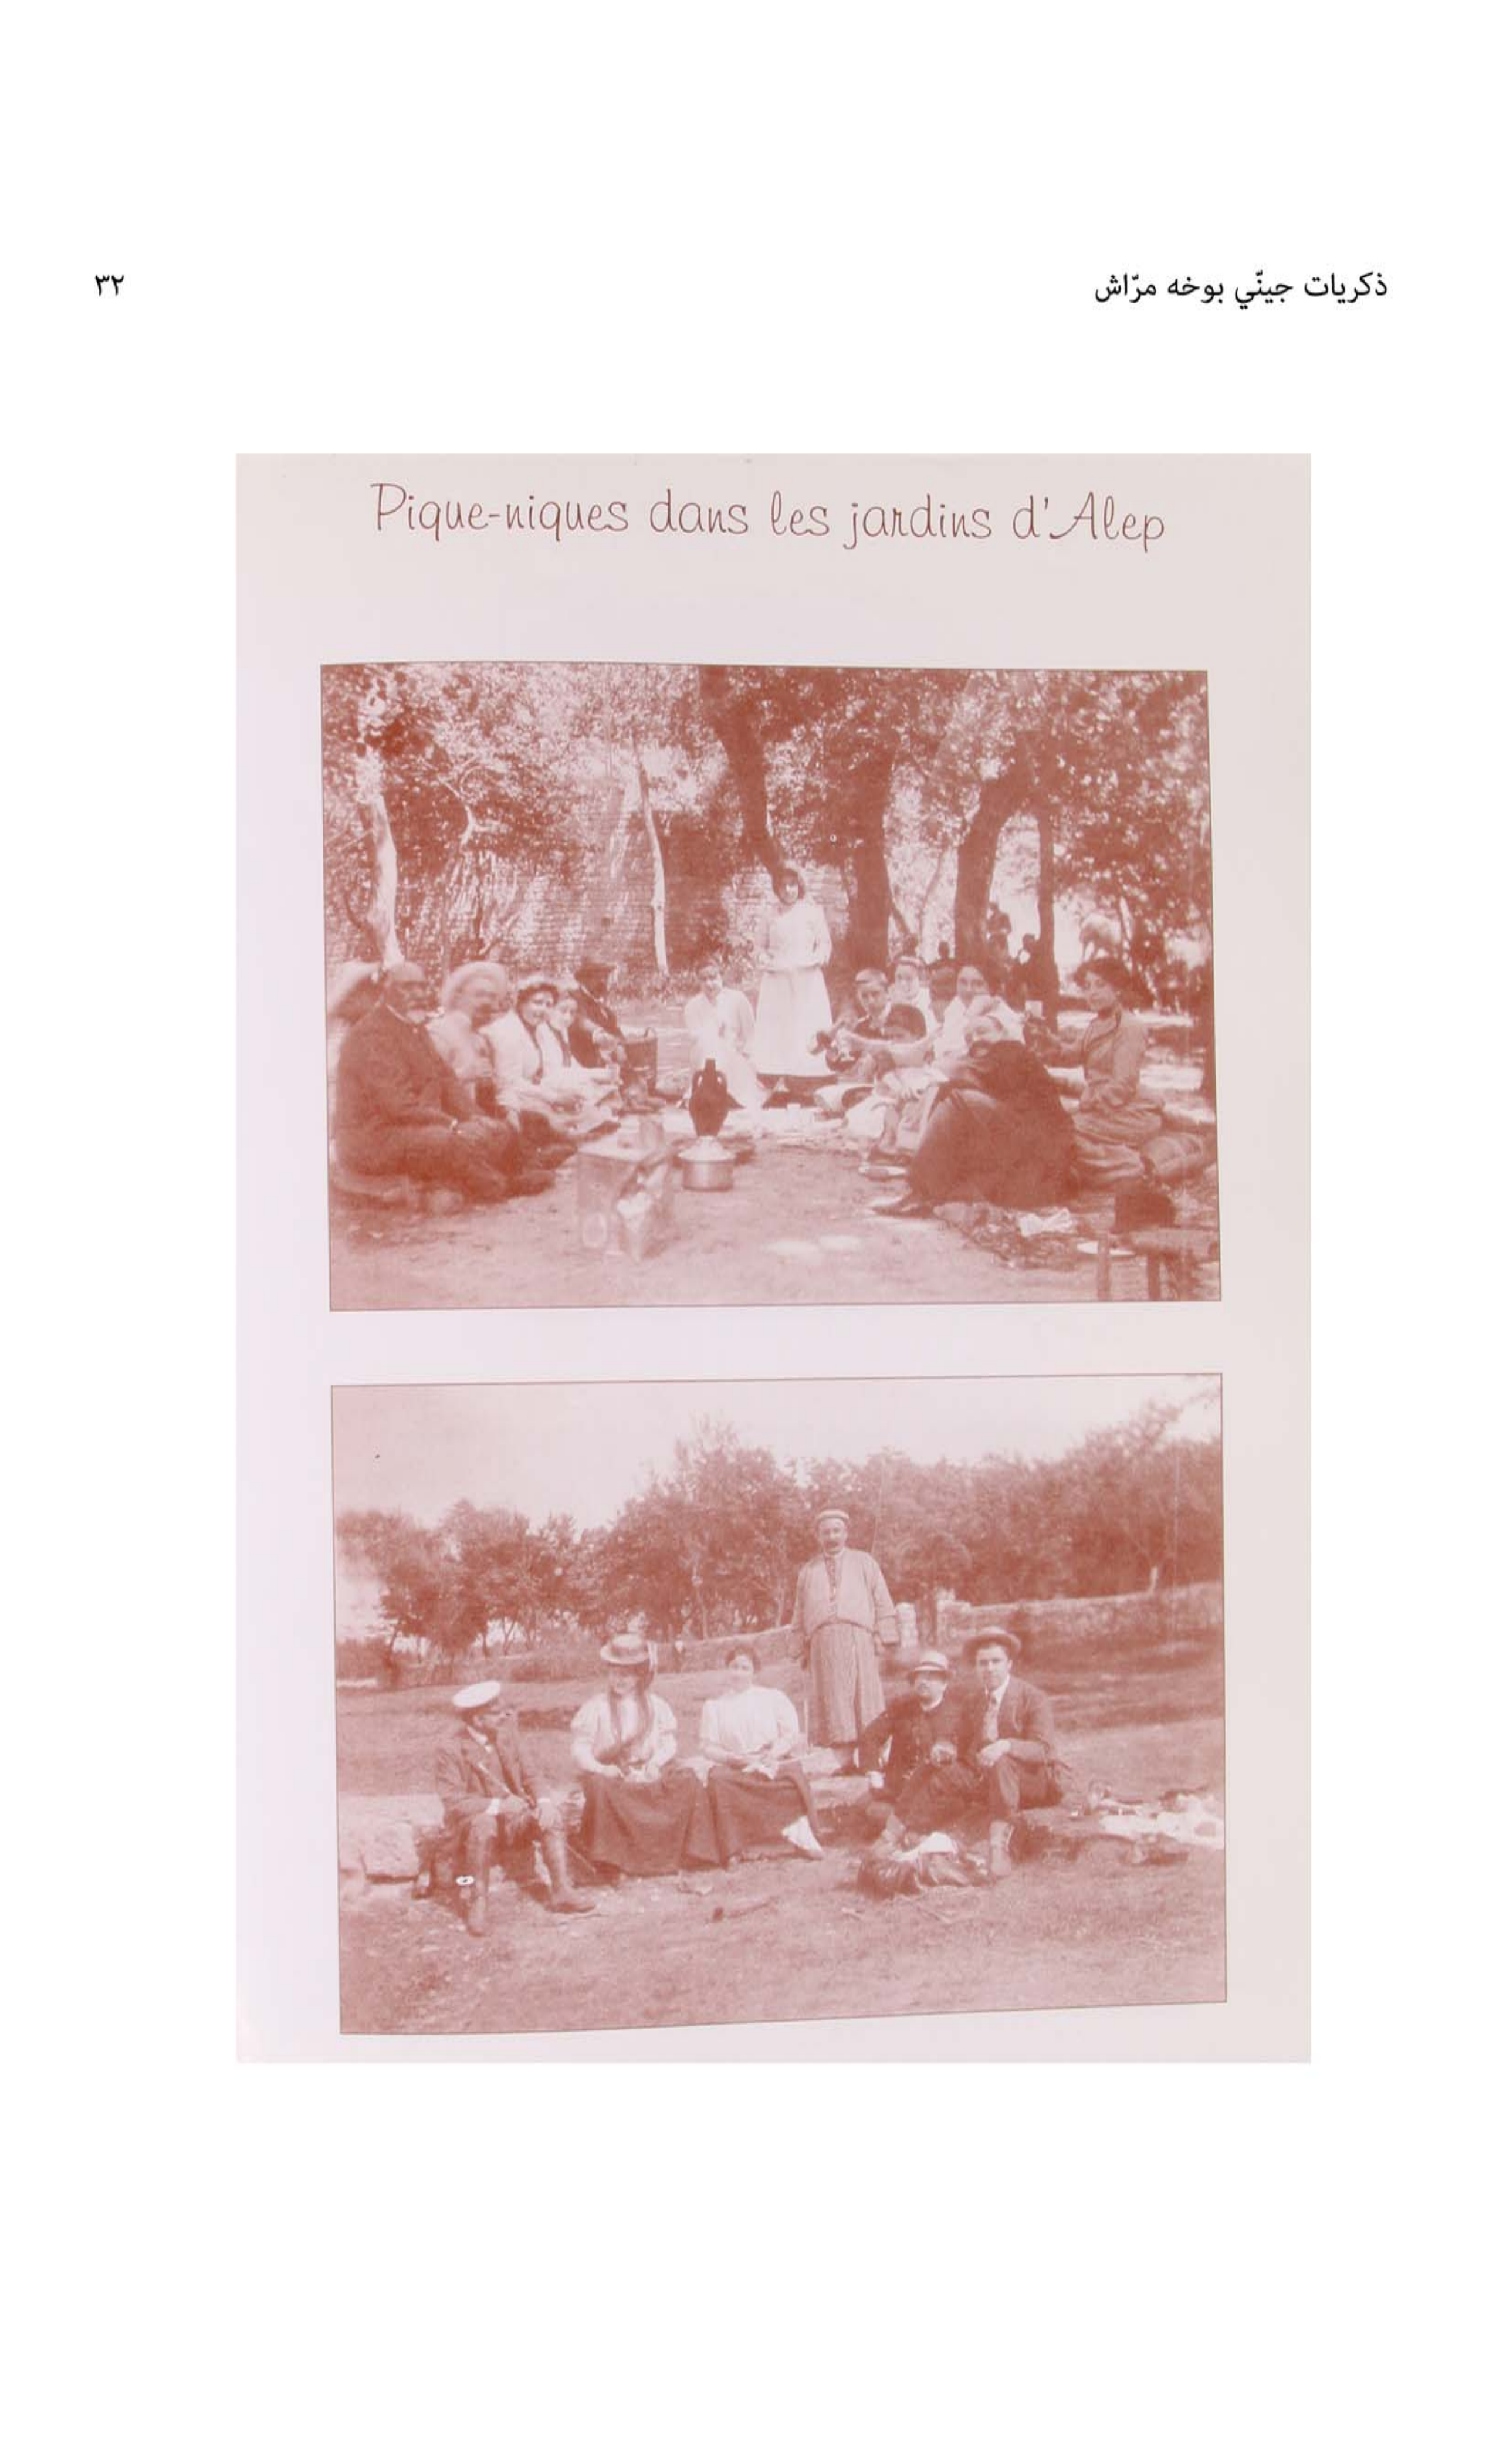 ذكريات جينّي بوخه مرّاش
٣٢
Pique-niques dans les jardins d'Alep